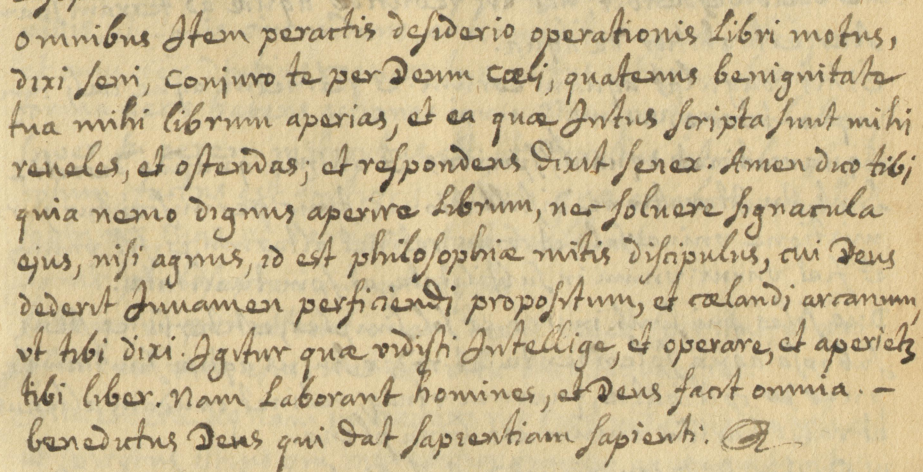 omnibus Item peractis desiderio operationis Libri motus,
dixi seni, Conjuro te per Deum Cœli, quatenus benignitate
tua mihi librum aperias, et ea quæ Intus scripta sunt mihi
reueles, et ostendas; et respondens dixit senex. Amen dico tibi
quia nemo dignus aperire Librum, nec soluere signacula
ejus, nisi agnus, id est philosophiæ mitis discipulus, cui Deus
dederit Iuuamen perficiendi propositum, et cœlandi arcanum,
ut tibi dixi. Igitur quæ vidisti Intellige, et operare, et aperietz
tibi liber. Nam Laborant homines, et Deus facit omnia. –
benedictus Deus qui dat sapientiam sapienti.